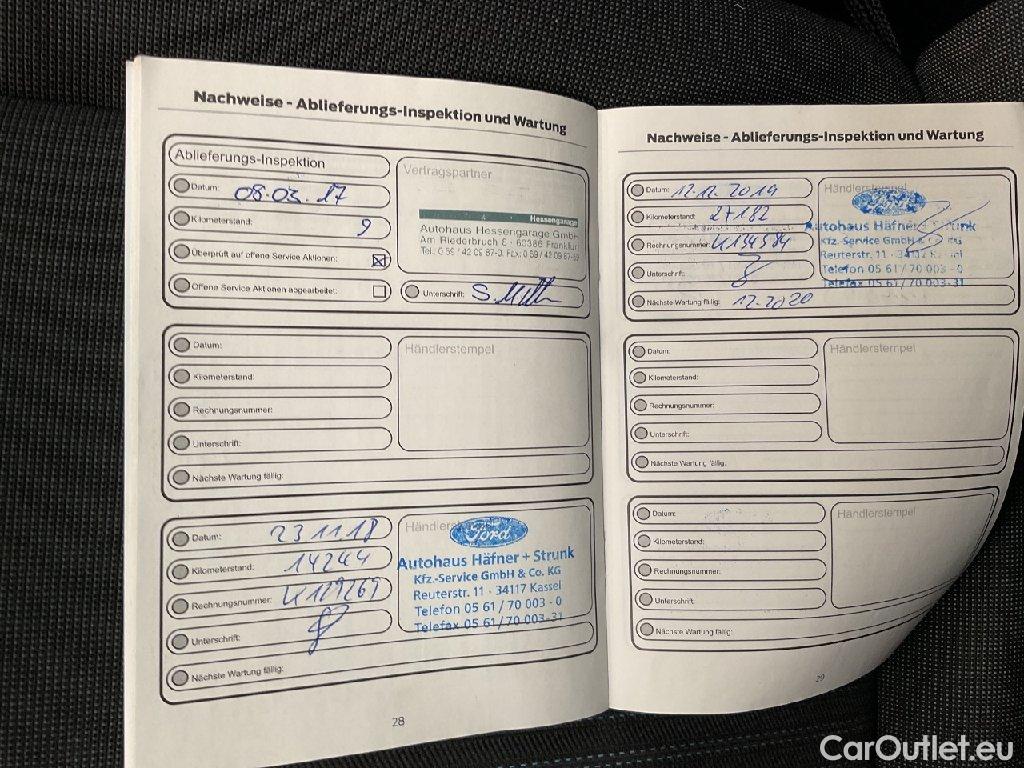 Nachweise - Ablieferungs-Inspektion und Wartung
Ablieferungs-Inspektion
Datum: 08.03.17
Kilometerstand: 9
Überprüft auf offene Service Aktionen:
Offene Service Aktionen abgearbeitet:
Vertragspartner
Hessengarage
Autohaus Hessengarage GmbH
Am Riederbruch 6 - 60386 Frankfurt
Unterschrift:
Datum:
Kilometerstand:
Rechnungsnummer:
Unterschrift:
Nächste Wartung fällig:
Händlerstempel
Datum: 23 11 18
Kilometerstand: 14244
Rechnungsnummer:
Unterschrift:
Nächste Wartung fällig:
Ford
Autohaus Häfner + Strunk
Kfz.-Service GmbH & Co. KG
Reuterstr. 11 · 34117 Kassel
Telefon 05 61 / 70 003 - 0
Telefax 05 61 / 70 003-31
28
Nachweise - Ablieferungs-Inspektion und Wartung
Datum: 12.12.2019
Kilometerstand: 27182
Rechnungsnummer:
Unterschrift:
Nächste Wartung fällig: 12.2020
Händlerstempel
Ford
Autohaus Häfner + Strunk
Kfz.-Service GmbH & Co. KG
Reuterstr. 11 · 34117 Kassel
Telefon 05 61 / 70 003 - 0
Telefax 05 61 / 70 003-31
Datum:
Kilometerstand:
Rechnungsnummer:
Unterschrift:
Nächste Wartung fällig:
Händlerstempel
Datum:
Kilometerstand:
Rechnungsnummer:
Unterschrift:
Nächste Wartung fällig:
Händlerstempel
29
CarOutlet.eu